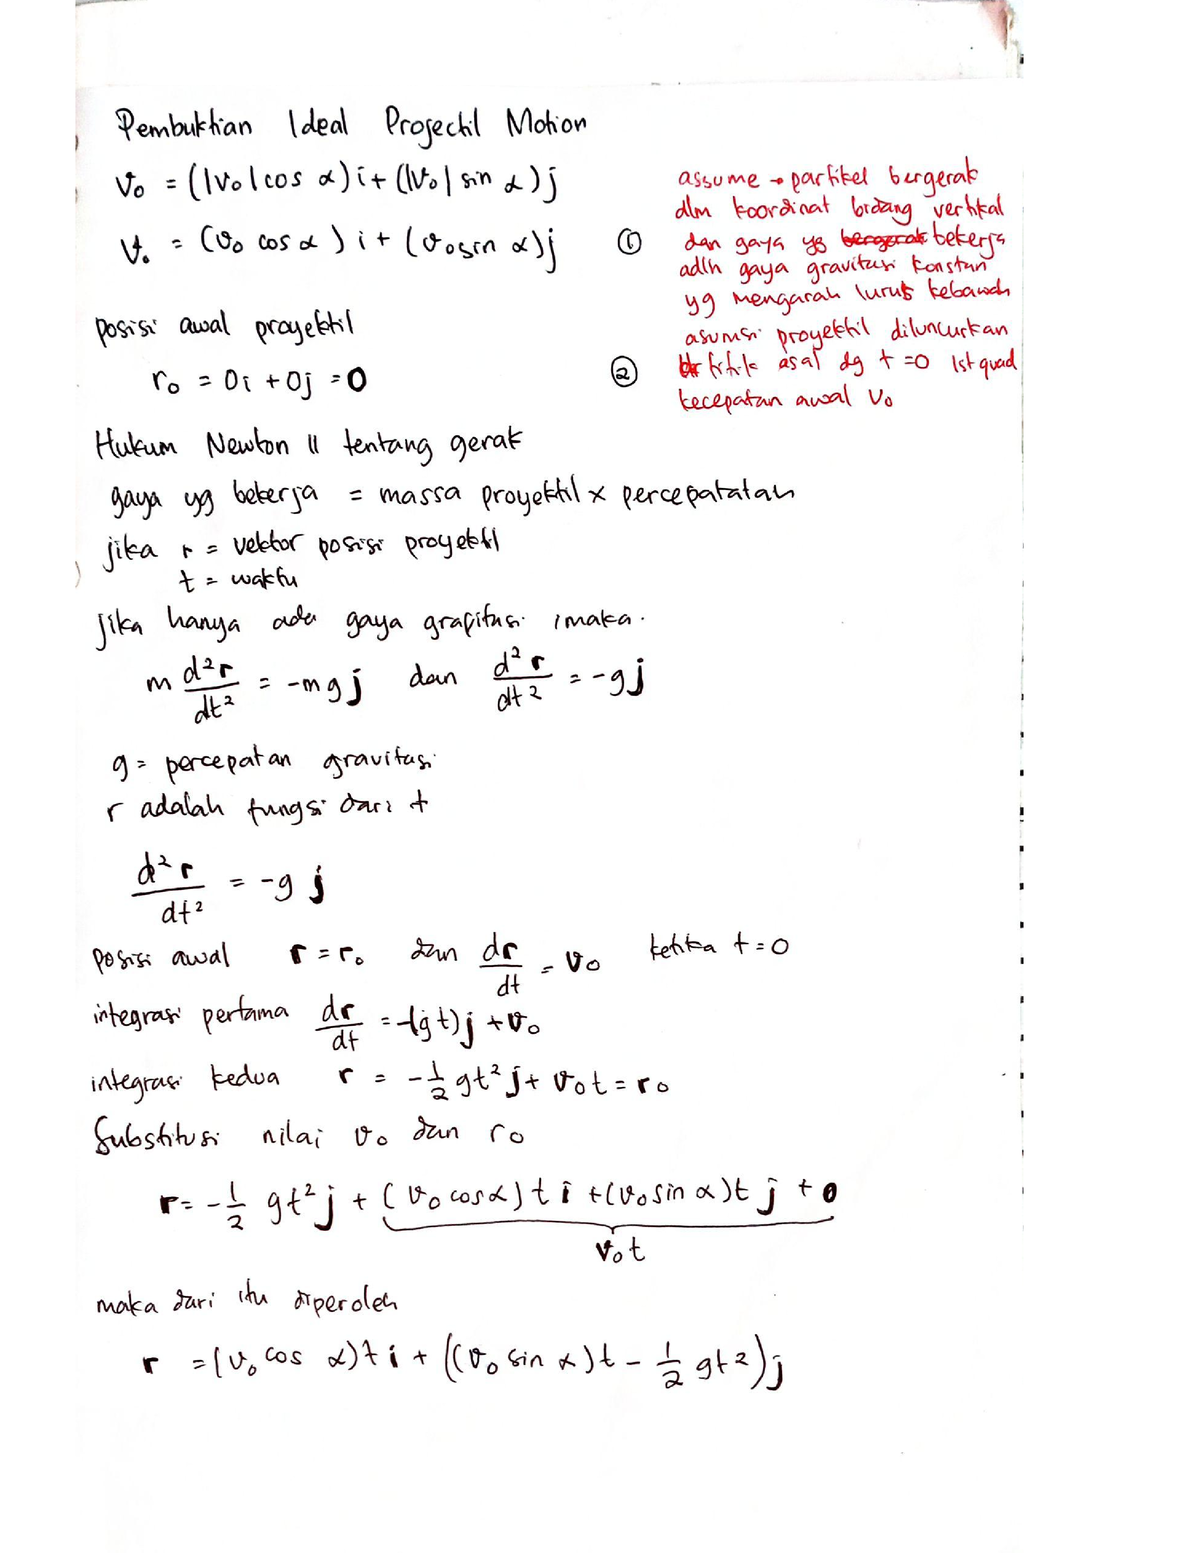 Pembuktian Ideal Projectil Motion
v₀ = (|v₀|cos α)i + (|v₀| sin α)j
v₀ = (v₀ cos α) i + (v₀ sin α)j
① assume → partikel bergerak
dlm koordinat bidang vertikal
dan gaya yg bergerak bekerja
adlh gaya gravitasi konstan
yg mengarah lurus kebawah
posisi awal proyektil
r₀ = 0i + 0j = 0
② asumsi proyektil diluncurkan
titik asal dg t = 0 1st quad
kecepatan awal v₀
Hukum Newton II tentang gerak
gaya yg bekerja = massa proyektil x percepatatan
jika r = vektor posisi proyektil
t = waktu
Jika hanya ada gaya grafitasi, maka.
m d²r/dt² = -mgj dan d²r/dt² = -gj
g = percepatan gravitasi
r adalah fungsi dari t
d²r/dt² = -g j
posisi awal r = r₀ dan dr/dt = v₀ ketika t = 0
integrasi pertama dr/dt = -(gt)j + v₀
integrasi kedua r = -1/2 gt² j + v₀t = r₀
Substitusi nilai v₀ dan r₀
r = -1/2 gt² j + (v₀ cos α) t i + (v₀ sin α)t j + 0
v₀t
maka dari itu diperoleh
r = (v₀ cos α)t i + ((v₀ sin α)t - 1/2 gt²)j